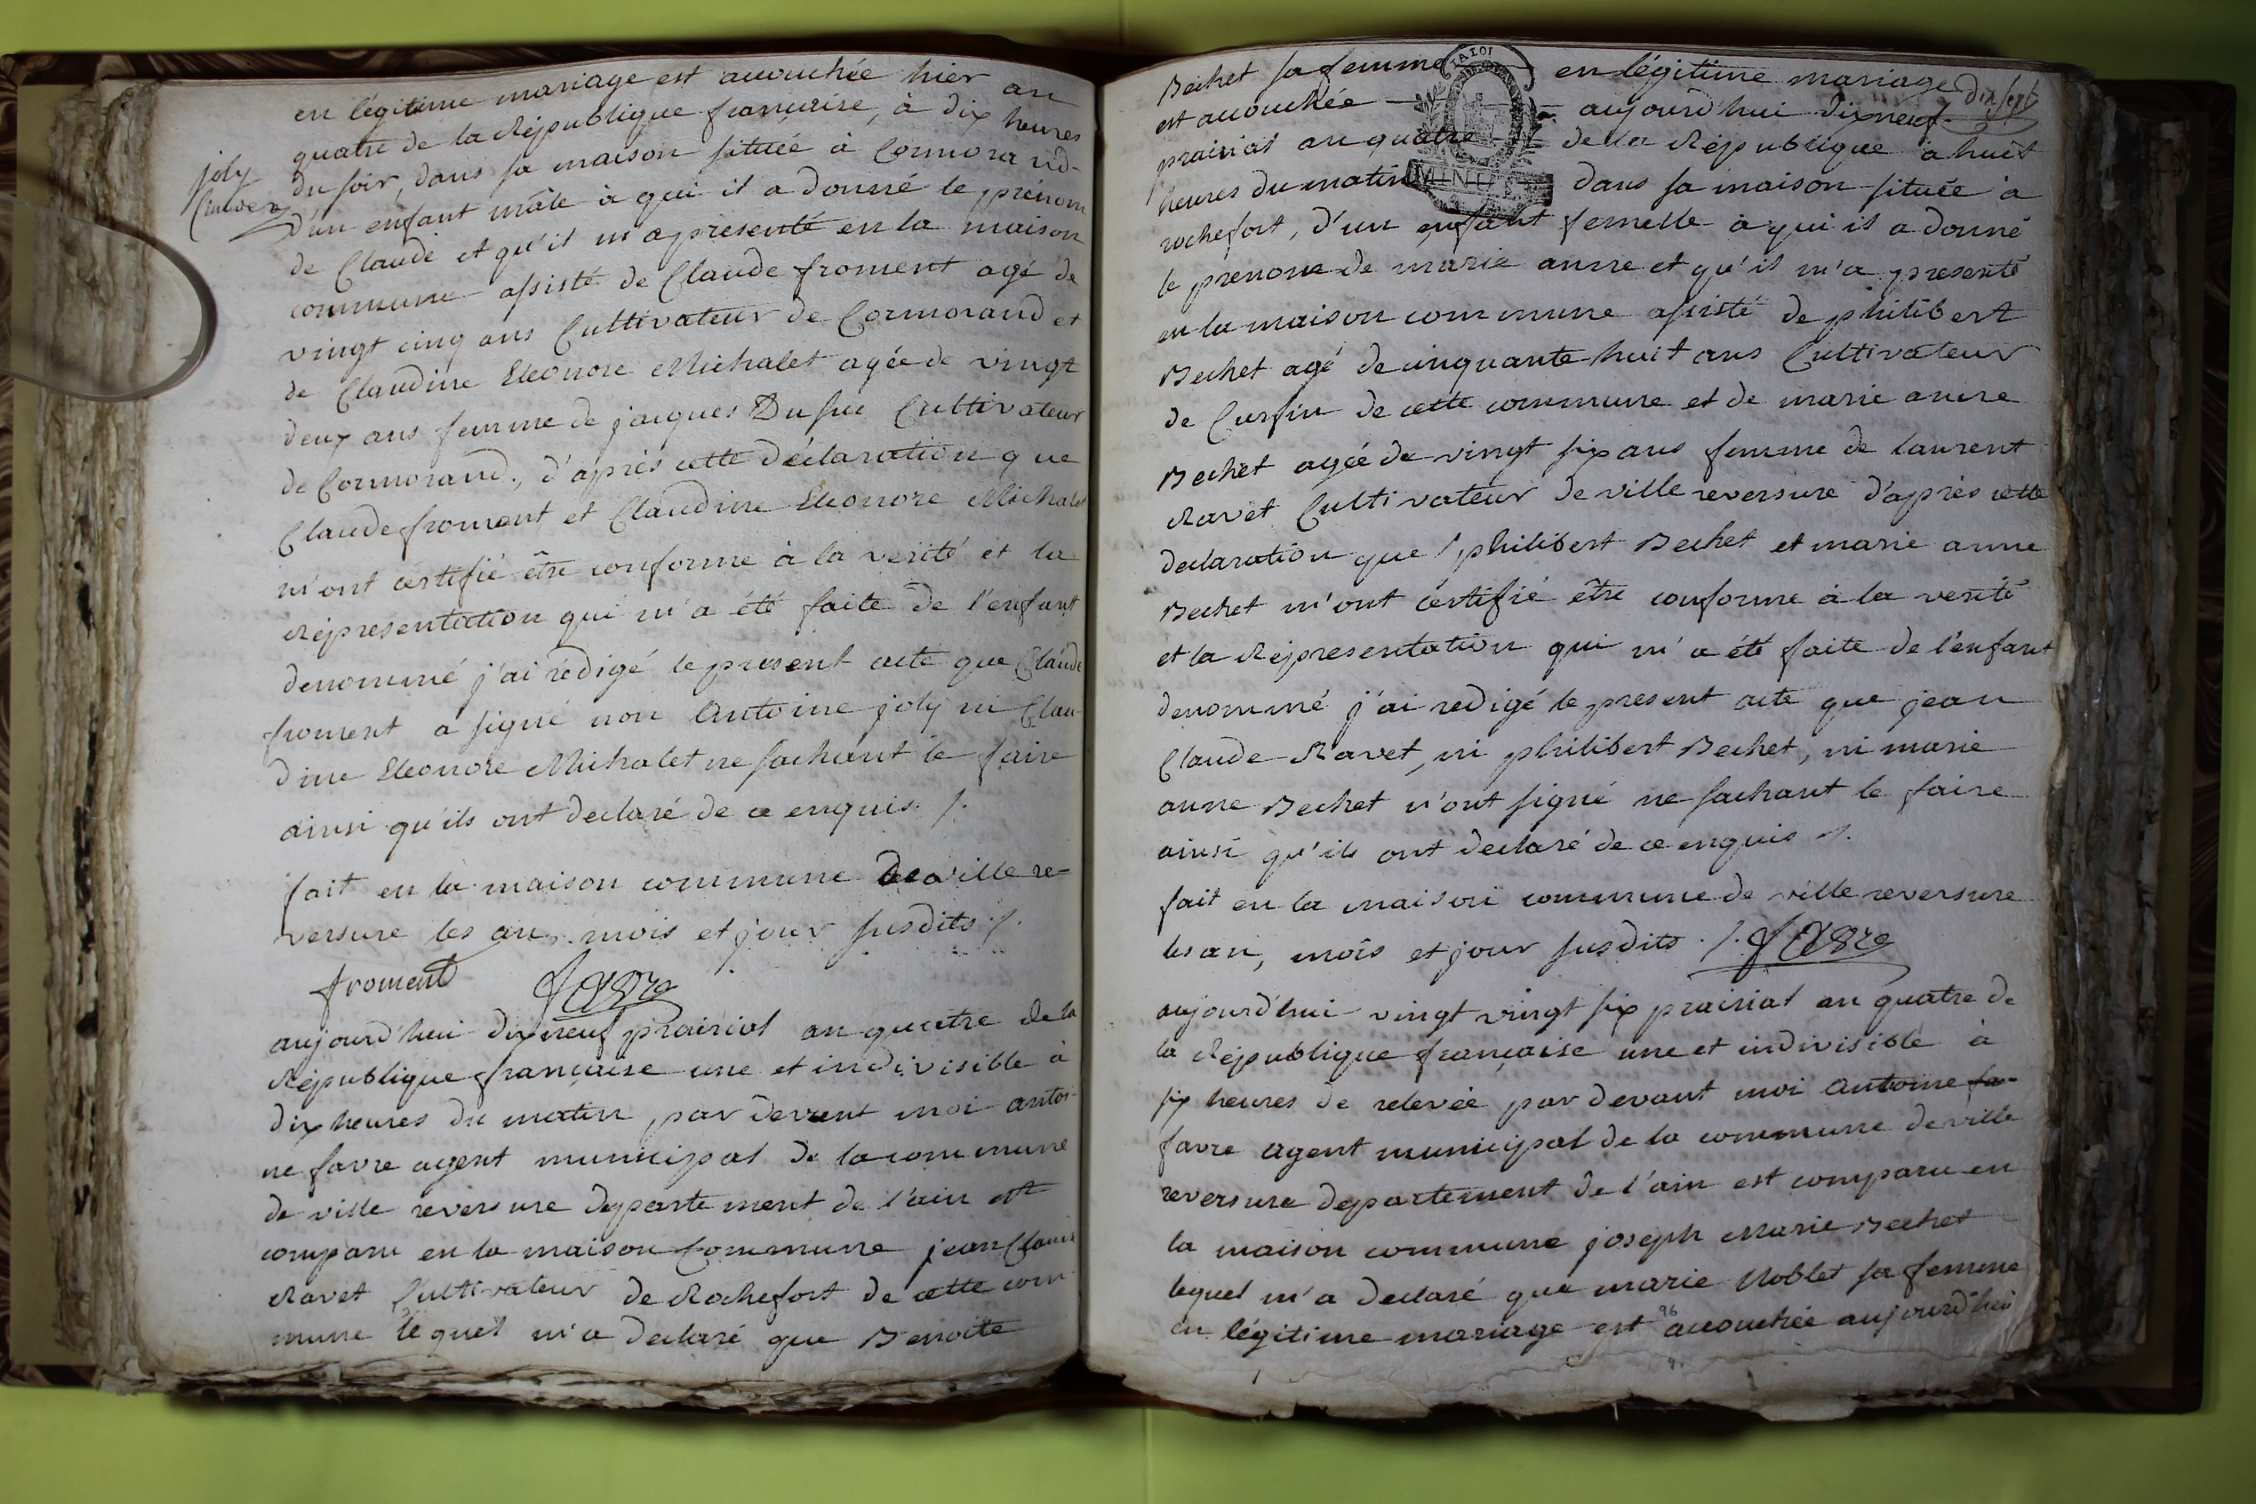 en légitime mariage est accouchée hier an
quatre de la République française, à dix heures
joly
Claude
du soir, dans sa maison située à Cormorand-
d'un enfant mâle à qui il a donné le prenom
de Claude et qu'il m'a présenté en la maison
commune assisté de Claude froment agé de
vingt cinq ans Cultivateur de Cormorand et
de Claudine Eleonore Michalet agée de vingt
deux ans femme de jacques Dusuc Cultivateur
de Cormorand, d'après cette déclaration que
Claude froment et Claudine Eleonore Michalet
m'ont certifié être conforme à la verité et la
Réprésentation qui m'a été faite de l'enfant
denommé j'ai rédigé le present acte que Claude
froment a signé non Antoine joly ni Clau
dine Eleonore Michalet ne sachant le faire
ainsi qu'ils ont declaré de ce enquis ./.
fait en la maison commune de ville re-
versure les an, mois et jour susdits ./.
froment favre
aujourd'hui dixneuf prairial an quatre de la
République française une et indivisible à
dix heures du matin, par devant moi antoi-
ne favre agent municipal de la commune
de ville reversure departement de l'ain est
comparu en la maison Commune jean Claude
Ravet Cultivateur de Rochefort de cette com
mune lequel m'a declaré que Benoite
Bechet sa femme en légitime mariage
est accouchée aujourd'hui dixneuf
dix sept
LA LOI
prairial an quatre de la République à huit
heures du matin dans sa maison située à
MINUTE
rochefort, d'un enfant femelle à qui il a donné
le prenom de marie anne et qu'il m'a presenté
en la maison commune assisté de philibert
Bechet agé de cinquante huit ans Cultivateur
de Cursin de cette commune et de marie anne
Bechet agée de vingt six ans femme de laurent
Ravet Cultivateur de ville reversure d'après cette
declaration que philibert Bechet et marie anne
Bechet m'ont certifié être conforme à la verité
et la Réprésentation qui m'a été faite de l'enfant
denommé j'ai redigé le present acte que jean
Claude Ravet, ni philibert Bechet, ni marie
anne Bechet n'ont signé ne sachant le faire
ainsi qu'ils ont declaré de ce enquis ./.
fait en la maison commune de ville reversure
les an, mois et jour susdits ./. favre
aujourd'hui vingt vingt six prairial an quatre de
la République française une et indivisible à
six heures de relevée par devant moi Antoine fa-
favre agent municipal de la commune de ville
reversure departement de l'ain est comparu en
la maison commune joseph Marie Bechet
lequel m'a declaré que marie Noblet sa femme
en légitime mariage est accouchée aujourd'hui
96